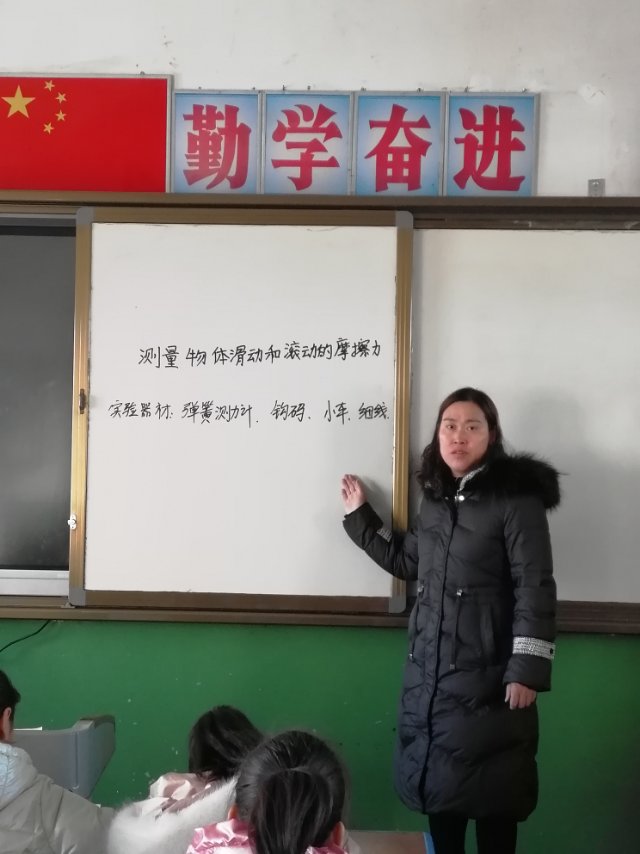 勤学奋进
测量物体滑动和滚动的摩擦力
实验器材:弹簧测力计、钩码、小车、细线.